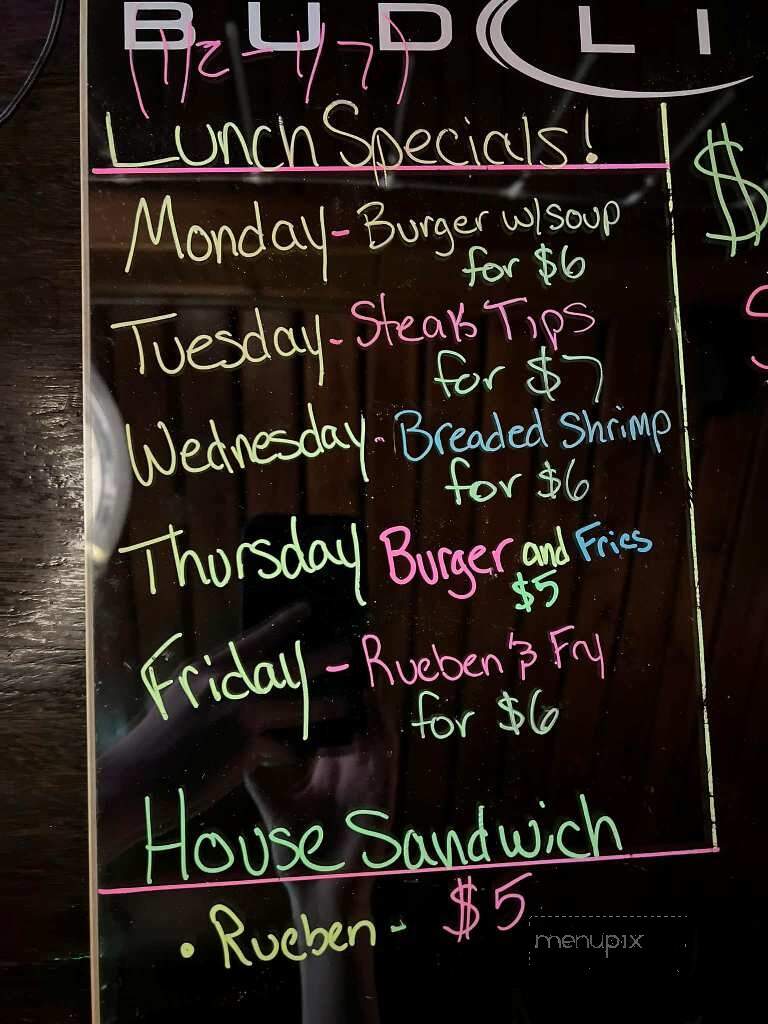 BUD LI
(1/2 - 1/7)
Lunch Specials!
$
Monday - Burger w/soup
for $6
Tuesday - Steak Tips
for $7
Wednesday - Breaded Shrimp
for $6
Thursday Burger and Fries
$5
Friday - Rueben & Fry
for $6
House Sandwich
• Rueben - $5
menupix